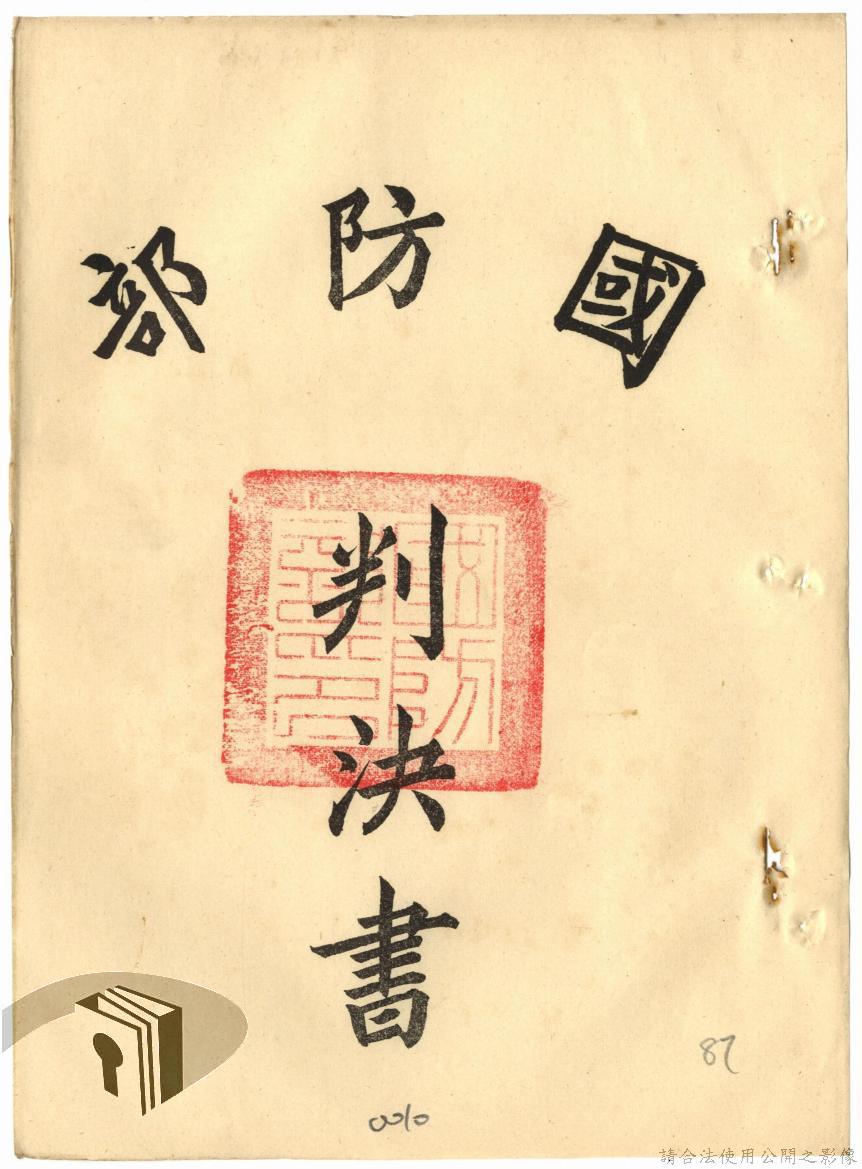 國防部
判決書
87
0010
請合法使用公開之影像